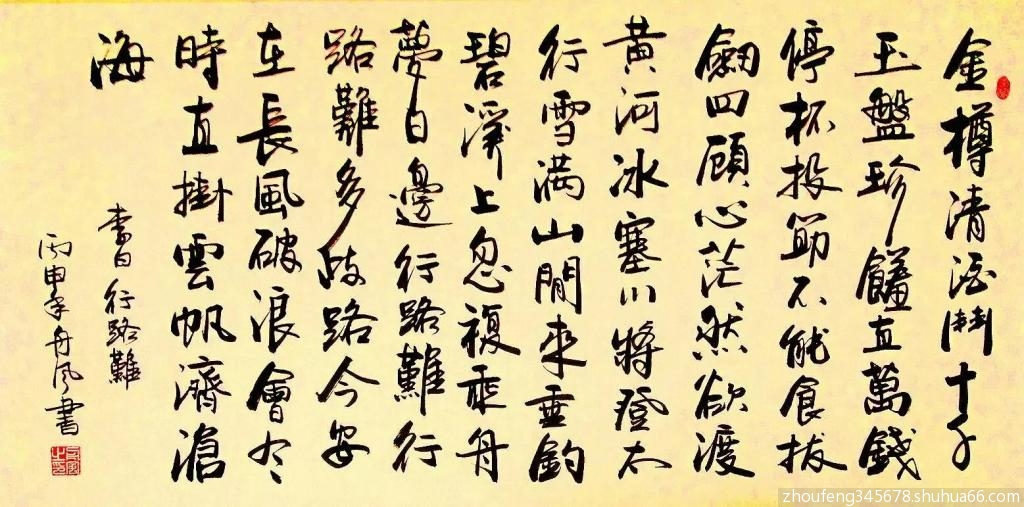 金樽清酒鬥十千
玉盤珍饈直萬錢
停杯投筯不能食拔
劍四顧心茫然欲渡
黃河冰塞川將登太
行雪滿山閒來垂釣
碧溪上忽複乘舟
夢日邊行路難行
路難多歧路今安
在長風破浪會有
時直掛雲帆濟滄
海
李白行路難
丙申年舟風書
zhoufeng345678.shuhua66.com